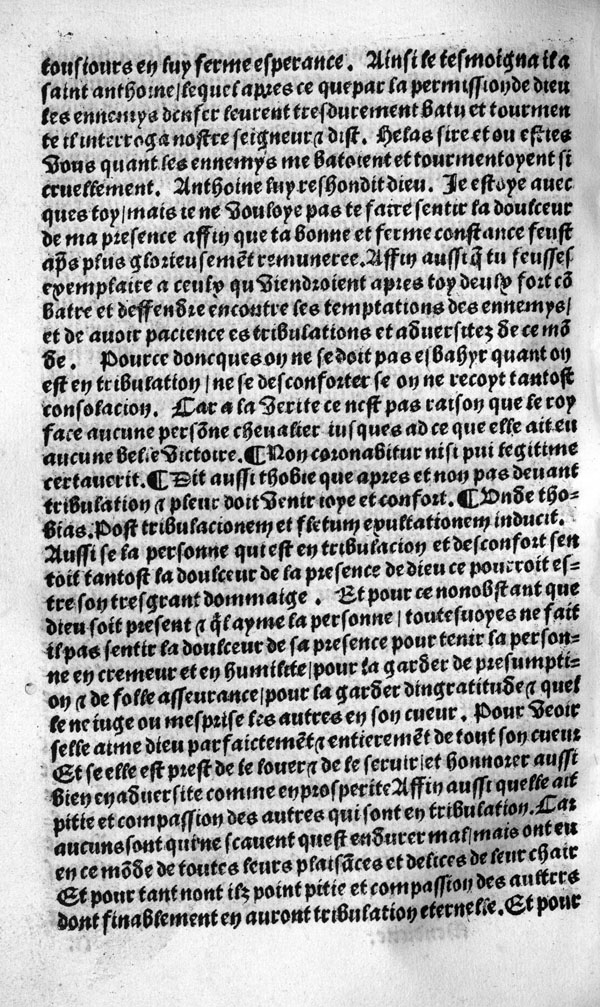 tousiours en luy ferme esperance. Ainsi le tesmoigna il a
saint anthoine/lequel apres ce que par la permission de dieu
les ennemys denfer leurent tresdurement batu et tourmen
te il interroga nostre seigneur ⁊ dist. Helas sire et ou esties
vous quant les ennemys me batoient et tourmentoyent si
cruellement. Anthoine luy respondit dieu. Je estoye avec
ques toy/mais ie ne vouloye pas te faire sentir la doulceur
de ma presence affin que ta bonne et ferme constance feust
aps̄ plus glorieusemēt remuneree. Affin aussi q̄ tu feusses
exemplaire a ceulx qu viendroient apres toy deulx fort cō
batre et deffendre encontre les temptations des ennemys/
et de avoir pacience es tribulations et adversitez de ce mō
de. Pource doncques on ne se doit pas esbahyr quant on
est en tribulation/ne se desconforter se on ne recoyt tantost
consolacion. Car a la verite ce nest pas raison que le roy
face aucune persōne chevalier iusques ad ce que elle ait eu
aucune belle victoire. ¶ Non coronabitur nisi qui legitime
certaverit. ¶ Dit aussi thobie que apres et non pas devant
tribulation ⁊ pleur doit venir ioye et confort. ¶ Unde tho-
bias. Post tribulacionem et fletum exultationem inducit.
Aussi se la personne qui est en tribulacion et desconfort sen
toit tantost la doulceur de la presence de dieu ce pourroit es-
tre son tresgrant dommaige. Et pour ce nonobstant que
dieu soit present ⁊ q̄l ayme la personne/toutesvoyes ne fait
il pas sentir la doulceur de sa presence pour tenir la person-
ne en cremeur et en humilite/pour la garder de presumpti-
on ⁊ de folle asseurance/pour la garder dingratitude ⁊ quel
le ne iuge ou mesprise les autres en son cueur. Pour veoir
selle aime dieu parfaictemēt ⁊ entieremēt de tout son cueur
Et se elle est prest de le louer ⁊ de le servir et honnorer aussi
bien en adversite comme en prosperite Affin aussi quelle ait
pitie et compassion des autres qui sont en tribulation. Car
aucuns sont qui ne scauent quest endurer mal/mais ont eu
en ce mōde de toutes leurs plaisāces et delices de leur chair
Et pour tant nont ilz point pitie et compassion des aultres
dont finablement en auront tribulation eternelle. Et pour